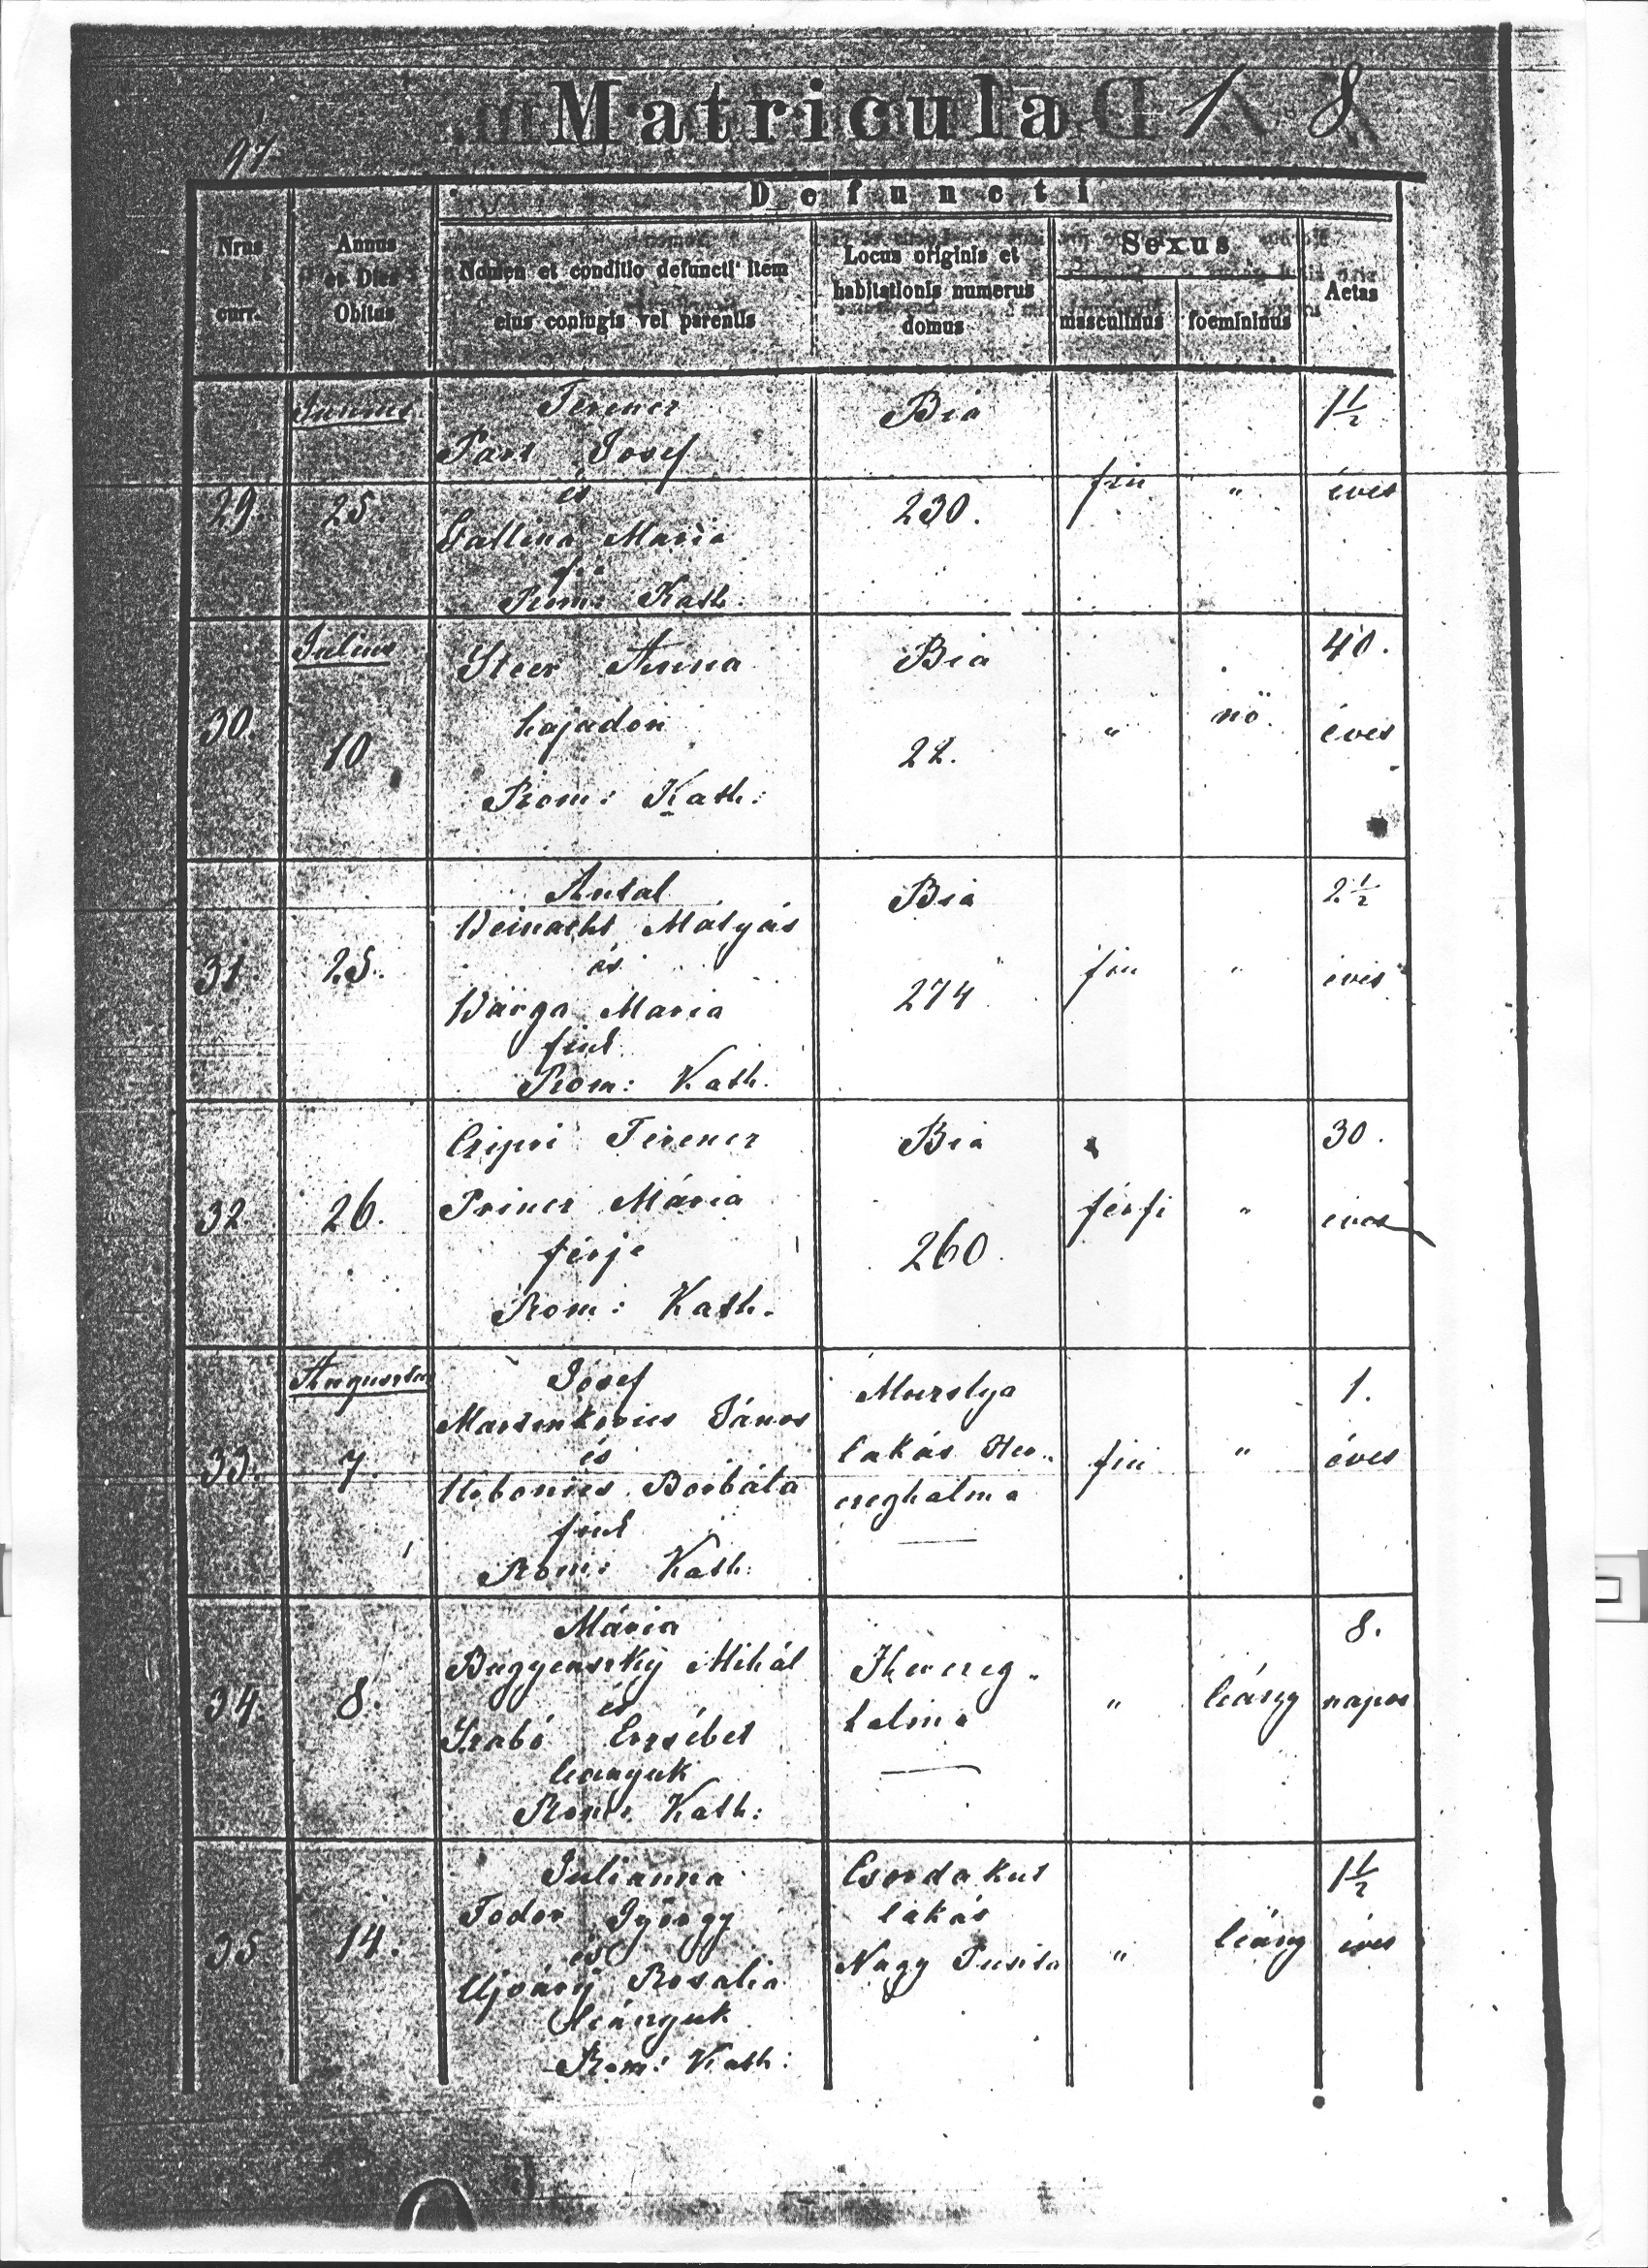 Matricula
97
Defuncti
Nrus curr.
Annus et Dies Obitus
Nomen et conditio defuncti item
eius coniugis vel parentis
Locus originis et
habitationis numerus
domus
Sexus
masculinus foemininus
Aetas
Junius Ferencz Bia 1 1/2
Part Josef
29. 25. és 230. fiú " éves
Gallina Mária
fia
Rom: Kath:
Julius Steer Anna Bia 40.
30. 10 hajadon 22. " nö. éves
Rom: Kath:
Antal Bia 2 1/2
Veinacht Mátyás
31. 25. és 274 fiu " éves
Varga Maria
fiuk
Rom: Kath.
Ferencz Bia 30.
32. 26. Princz Mária 260 férfi " éves
férje
Rom: Kath.
Augusztus Josef 1.
János lakás Her-
33. 7. és czeghalma fiu " éves
Borbála
fiuk
Rom: Kath:
Mária 8.
Bugyenszky Mihál Herczeg-
34. 8. és halma " leány napos
Szabó Erzsébet
leanyuk
Rom: Kath:
Julianna Csordakut 1 1/2
Fodor György lakás
35 14. és Nagy Puszta " leány éves
Ujváry Rosalia
leányuk
Rom: Kath: